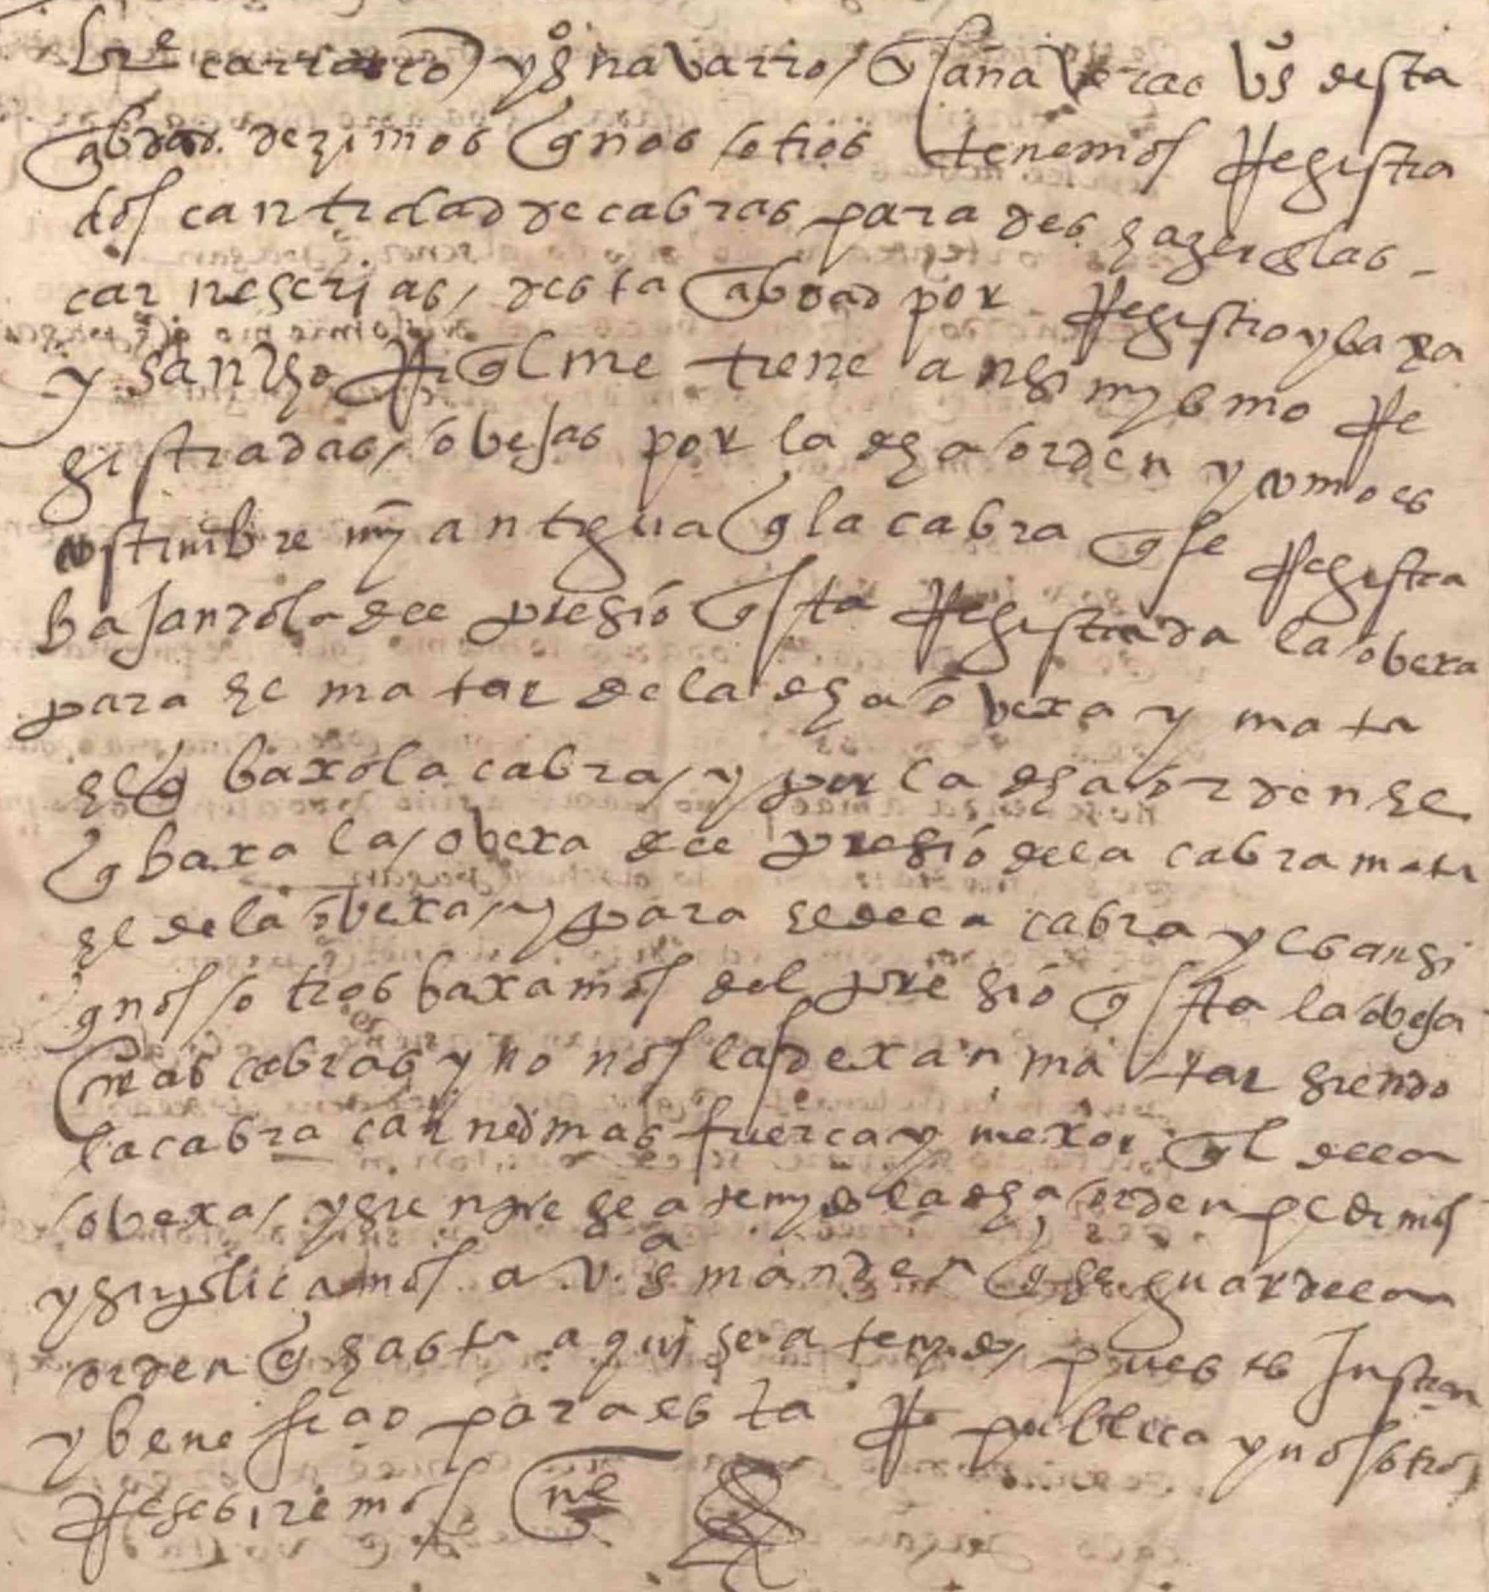 lure carrasco y go navarro / qsañaveras vos desta
çibdad. dezimos q nosotros tenemos rregistra
dos cantidad de cabras para deshazer en las
carnescerias, desta çibdad por rregistro y baxa
y sancho rriqlme tiene ansi mysmo rre
gistradas, obejas por la dha orden y como es
costunbre muy antigua q la cabra q se rregistra
bajandola del presçio questa rregistrada la obexa
para el matar de la dha obexa y mata
el q baxo la cabra, y por la dha orden el
q baxa la obexa del presçio de la cabra mata
el de la obexa, y para el de la cabra y es ansi
q nosotros baxamos del presçio questa la obeja
nras cabras y no nos las dexan matar siendo
la cabra carne de mas fuerça y mexor ql de la
obexa, y sienpre se a tenydo la dha orden pedimos
y suplicamos a v. sa manden q se guarde la
orden q hasta aqui se a tenydo, pues es Justicia
y beneficio para esta rrepublica y nosotros
rresebiremos mrd